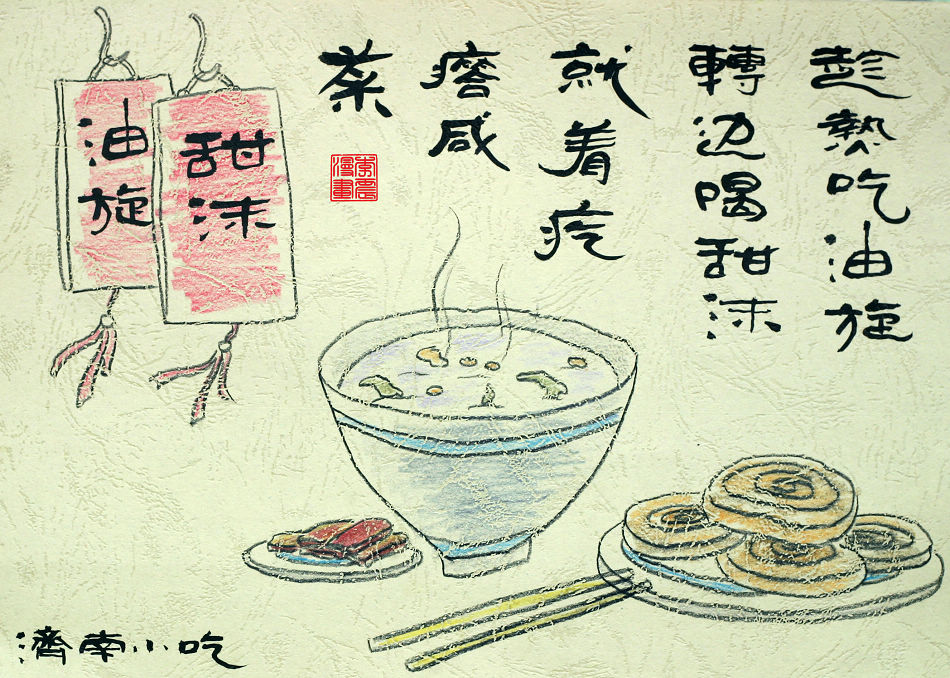 趁熱吃油旋
轉边喝甜沫
就着疙
瘩咸
菜
漫畫
甜沫
油旋
濟南小吃